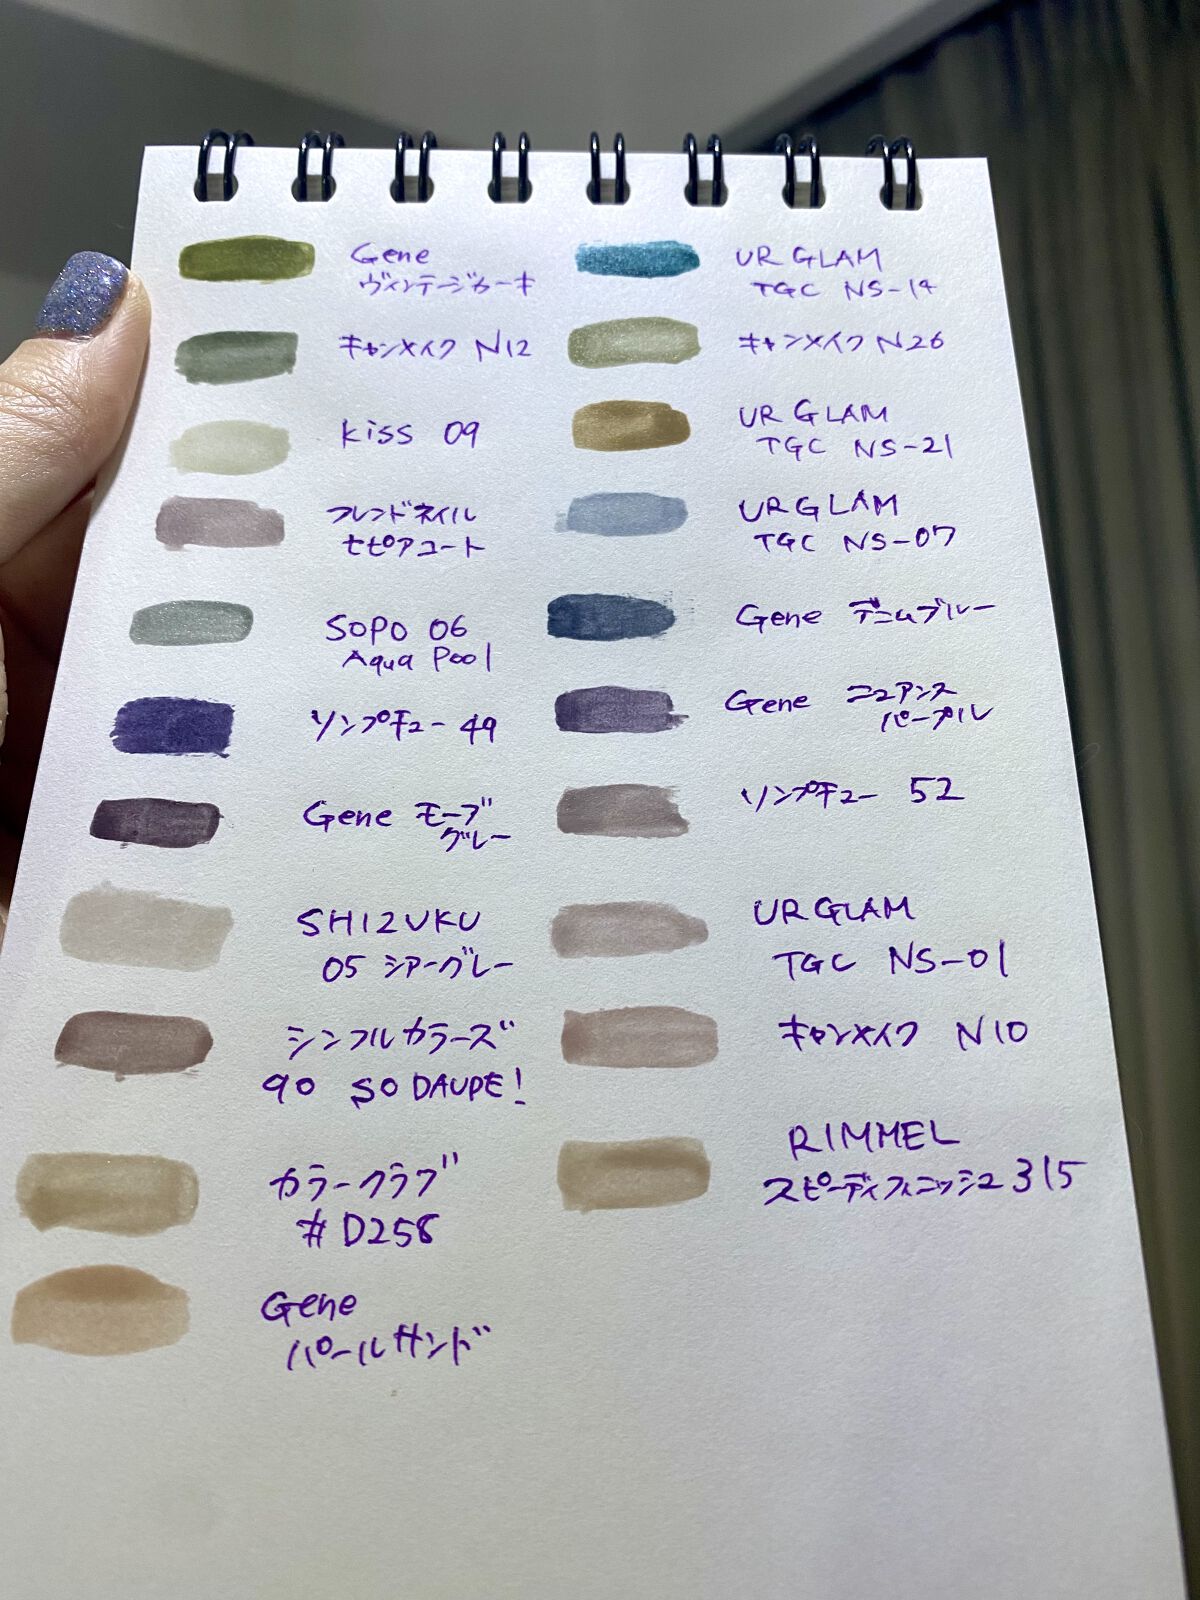 Gene
ヴィンテージカーキ
キャンメイク N12
kiss 09
フレンドネイル
セピアコート
SOPO 06
Aqua Pool
ソンプチュー 49
Gene モーブ
グレー
SHIZUKU
05 シアーグレー
シンプルカラーズ
90 SO DAUPE!
カラークラブ
# D258
Gene
パールサンド
UR GLAM
TGC NS-14
キャンメイク N26
UR GLAM
TGC NS-21
URGLAM
TGC NS-07
Gene デニムブルー
Gene ニュアンス
パープル
ソンプチュー 52
URGLAM
TGC NS-01
キャンメイク N10
RIMMEL
スピーディフィニッシュ 315